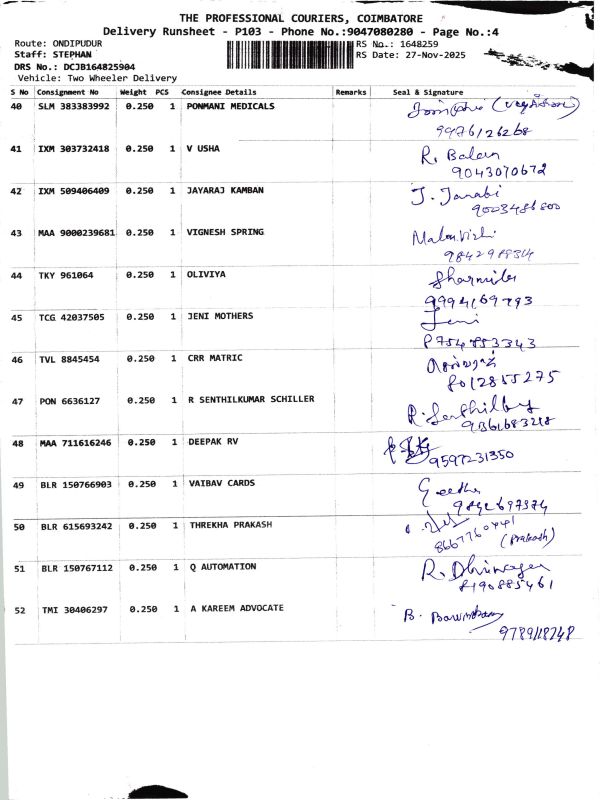 THE PROFESSIONAL COURIERS, COIMBATORE
Delivery Runsheet - P103 - Phone No.:9047080280 - Page No.:4
Route: ONDIPUDUR RS No.: 1648259
Staff: STEPHAN RS Date: 27-Nov-2025
DRS No.: DCJB164825904
Vehicle: Two Wheeler Delivery
S No Consignment No Weight PCS Consignee Details Remarks Seal & Signature
40 SLM 383383992 0.250 1 PONMANI MEDICALS
9976126268
41 IXM 303732418 0.250 1 V USHA R. Balan
9043070672
42 IXM 509406409 0.250 1 JAYARAJ KAMBAN J. Janabi
9003486800
43 MAA 9000239681 0.250 1 VIGNESH SPRING
44 TKY 961064 0.250 1 OLIVIYA Sharmila
9994169793
45 TCG 42037505 0.250 1 JENI MOTHERS Jeni
8754853343
46 TVL 8845454 0.250 1 CRR MATRIC
8012855275
47 PON 6636127 0.250 1 R SENTHILKUMAR SCHILLER
9361683218
48 MAA 711616246 0.250 1 DEEPAK RV
9597231350
49 BLR 150766903 0.250 1 VAIBAV CARDS Geetha
9892697374
50 BLR 615693242 0.250 1 THREKHA PRAKASH
8667760441
(Prakash)
51 BLR 150767112 0.250 1 Q AUTOMATION
8190885461
52 TMI 30406297 0.250 1 A KAREEM ADVOCATE B.